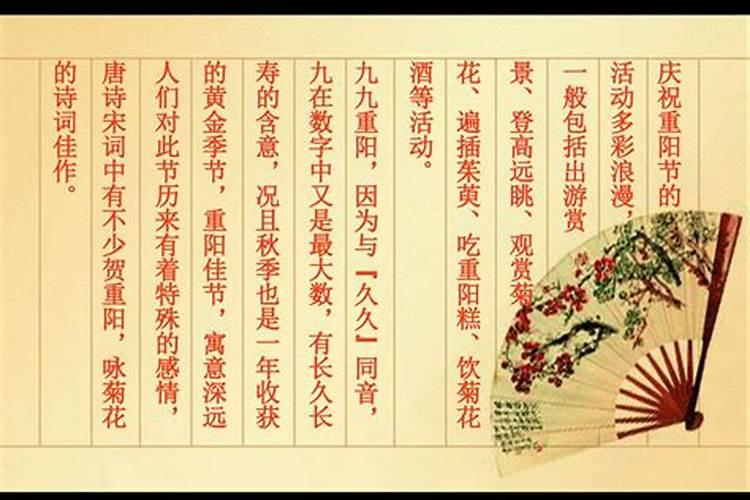 庆祝重阳节的
活动多彩浪漫，
一般包括出游赏
景、登高远眺、观赏菊
花、遍插茱萸、吃重阳糕、饮菊花
酒等活动。
九九重阳，因为与『久久』同音，
九在数字中又是最大数，有长久长
寿的含意，况且秋季也是一年收获
的黄金季节，重阳佳节，寓意深远
人们对此节历来有着特殊的感情，
唐诗宋词中有不少贺重阳，咏菊花
的诗词佳作。